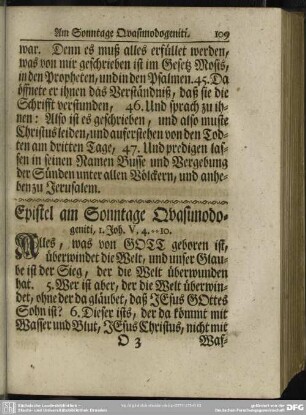 Am Sonntage Qvasimodogeniti. 109
war. Denn es muß alles erfüllet werden,
was von mir geschrieben ist im Gesetz Mosis,
in den Propheten, und in den Psalmen. 45. Da
öffnete er ihnen das Verständniß, daß sie die
Schrifft verstunden, 46. Und sprach zu ih-
nen: Also ist es geschrieben, und also muste
Christus leiden, und auferstehen von den Tod-
ten am dritten Tage, 47. Und predigen las-
sen in seinen Namen Busse und Vergebung
der Sünden unter allen Völckern, und anhe-
ben zu Jerusalem.
Epistel am Sonntage Qvasimodo-
geniti, 1. Joh. V, 4.--10.
Alles, was von GOTT geboren ist,
überwindet die Welt, und unser Glau-
be ist der Sieg, der die Welt überwunden
hat. 5. Wer ist aber, der die Welt überwin-
det, ohne der da gläubet, daß JEsus GOttes
Sohn ist? 6. Dieser ists, der da kömmt mit
Wasser und Blut, JEsus Christus, nicht mit
O 3 Was-
DFG